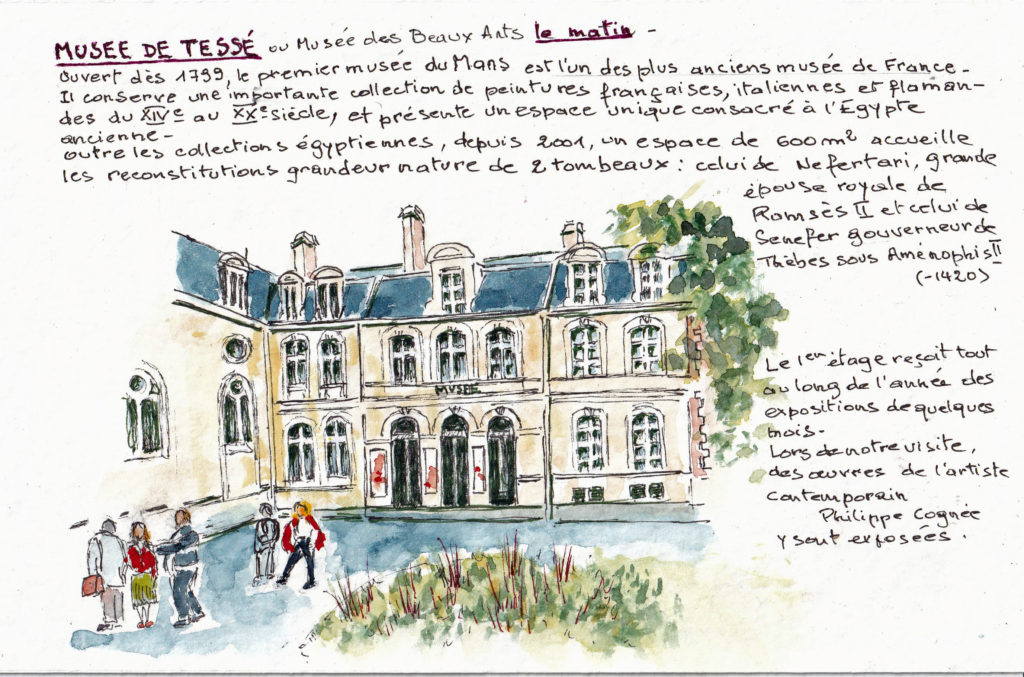 MUSEE DE TESSÉ ou Musée des Beaux Arts le matin -
Ouvert dès 1799, le premier musée du Mans est l'un des plus anciens musée de France -
Il conserve une importante collection de peintures françaises, italiennes et flaman-
des du XIVe au XXe siècle, et présente un espace unique consacré à l'Egypte
ancienne -
outre les collections égyptiennes, depuis 2001, un espace de 600 m² accueille
les reconstitutions grandeur nature de 2 tombeaux : celui de Nefertari, grande
épouse royale de
Ramsès II et celui de
Senefer gouverneur de
Thèbes sous Aménophis II
(-1420)
MUSEE
Le 1er étage reçoit tout
au long de l'année des
expositions de quelques
mois -
Lors de notre visite,
des œuvres de l'artiste
contemporain
Philippe Cognée
y sont exposées.